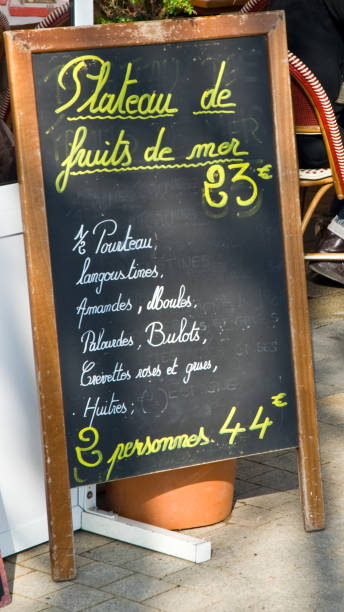 Plateau de
fruits de mer
23€
½ Tourteau,
langoustines,
Amandes, Moules,
Palourdes, Bulots,
Crevettes roses et grises,
Huitres,
2 personnes. 44€